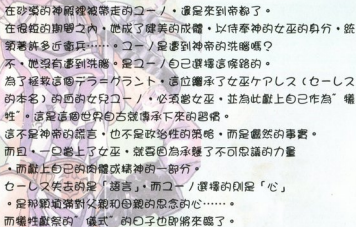 在砂漠的神殿裡被帶走的ユーノ，還是來到帝都了。
在很短的期間之內，她成了健美的成體，以侍奉神的女巫的身分，統
領著許多近衛兵……。ユーノ是遭到神帝的洗腦嗎？
不，她沒有遭到洗腦。是ユーノ自己選擇這條路的。
為了拯救這個デラ=グラント，這位繼承了女巫ケアレス（セーレス
的本名）的血的女兒ユーノ，必須當女巫，並為此獻上自己作為"犧
牲"。這是這個世界自古就傳承下來的習慣。
這不是神帝的謊言，也不是政治性的策略，而是儼然的事實。
而且，一旦當上了女巫，就要自為承襲了不可思議的力量
，而獻上自己的肉體或精神的一部分。
セーレス失去的是「語言」，而ユーノ選擇的則是「心」
。是那顆填滿對父親和母親的思念的心……。
而犧牲獻祭的"儀式"的日子也即將來臨了。